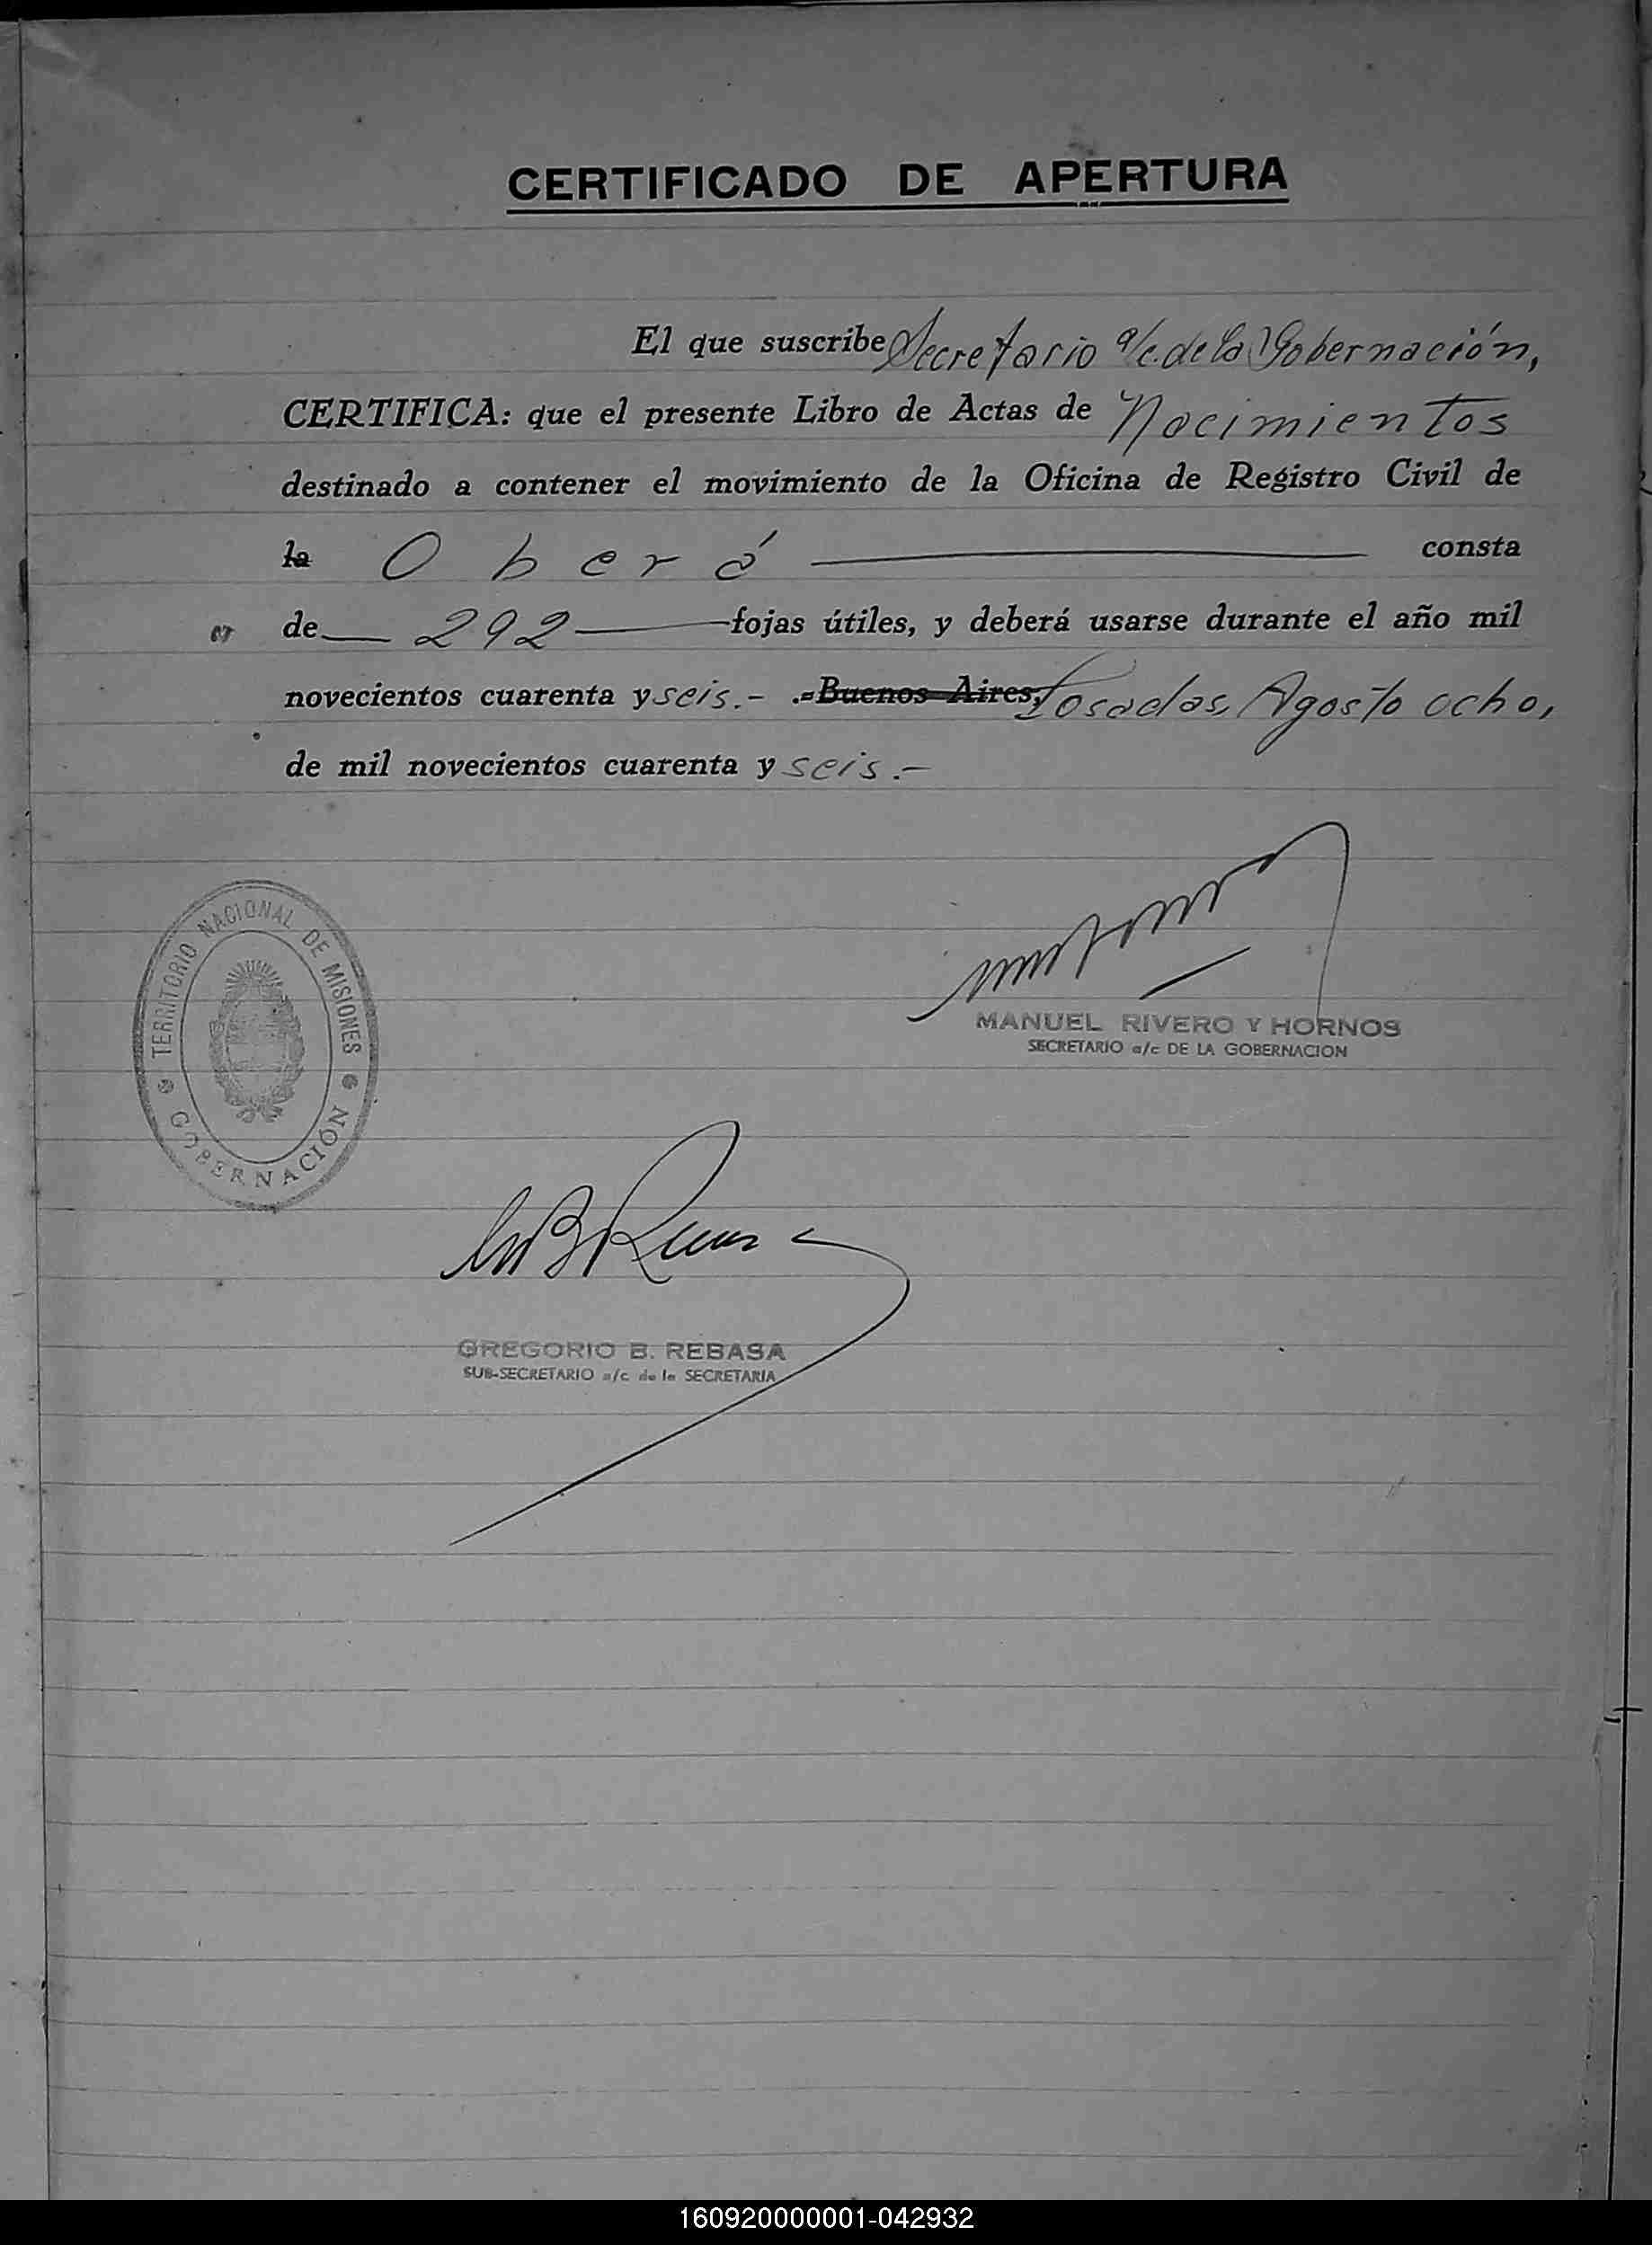 CERTIFICADO DE APERTURA
El que suscribe Secretario a/c. de la Gobernación,
CERTIFICA: que el presente Libro de Actas de Nacimientos
destinado a contener el movimiento de la Oficina de Registro Civil de
la Oberá consta
de 292 fojas útiles, y deberá usarse durante el año mil
novecientos cuarenta y seis.- .-Buenos Aires, Posadas, Agosto ocho,
de mil novecientos cuarenta y seis.-
TERRITORIO NACIONAL DE MISIONES
GOBERNACIÓN
MANUEL RIVERO Y HORNOS
SECRETARIO a/c DE LA GOBERNACION
GREGORIO B. REBASA
SUB-SECRETARIO a/c de la SECRETARIA
160920000001-042932